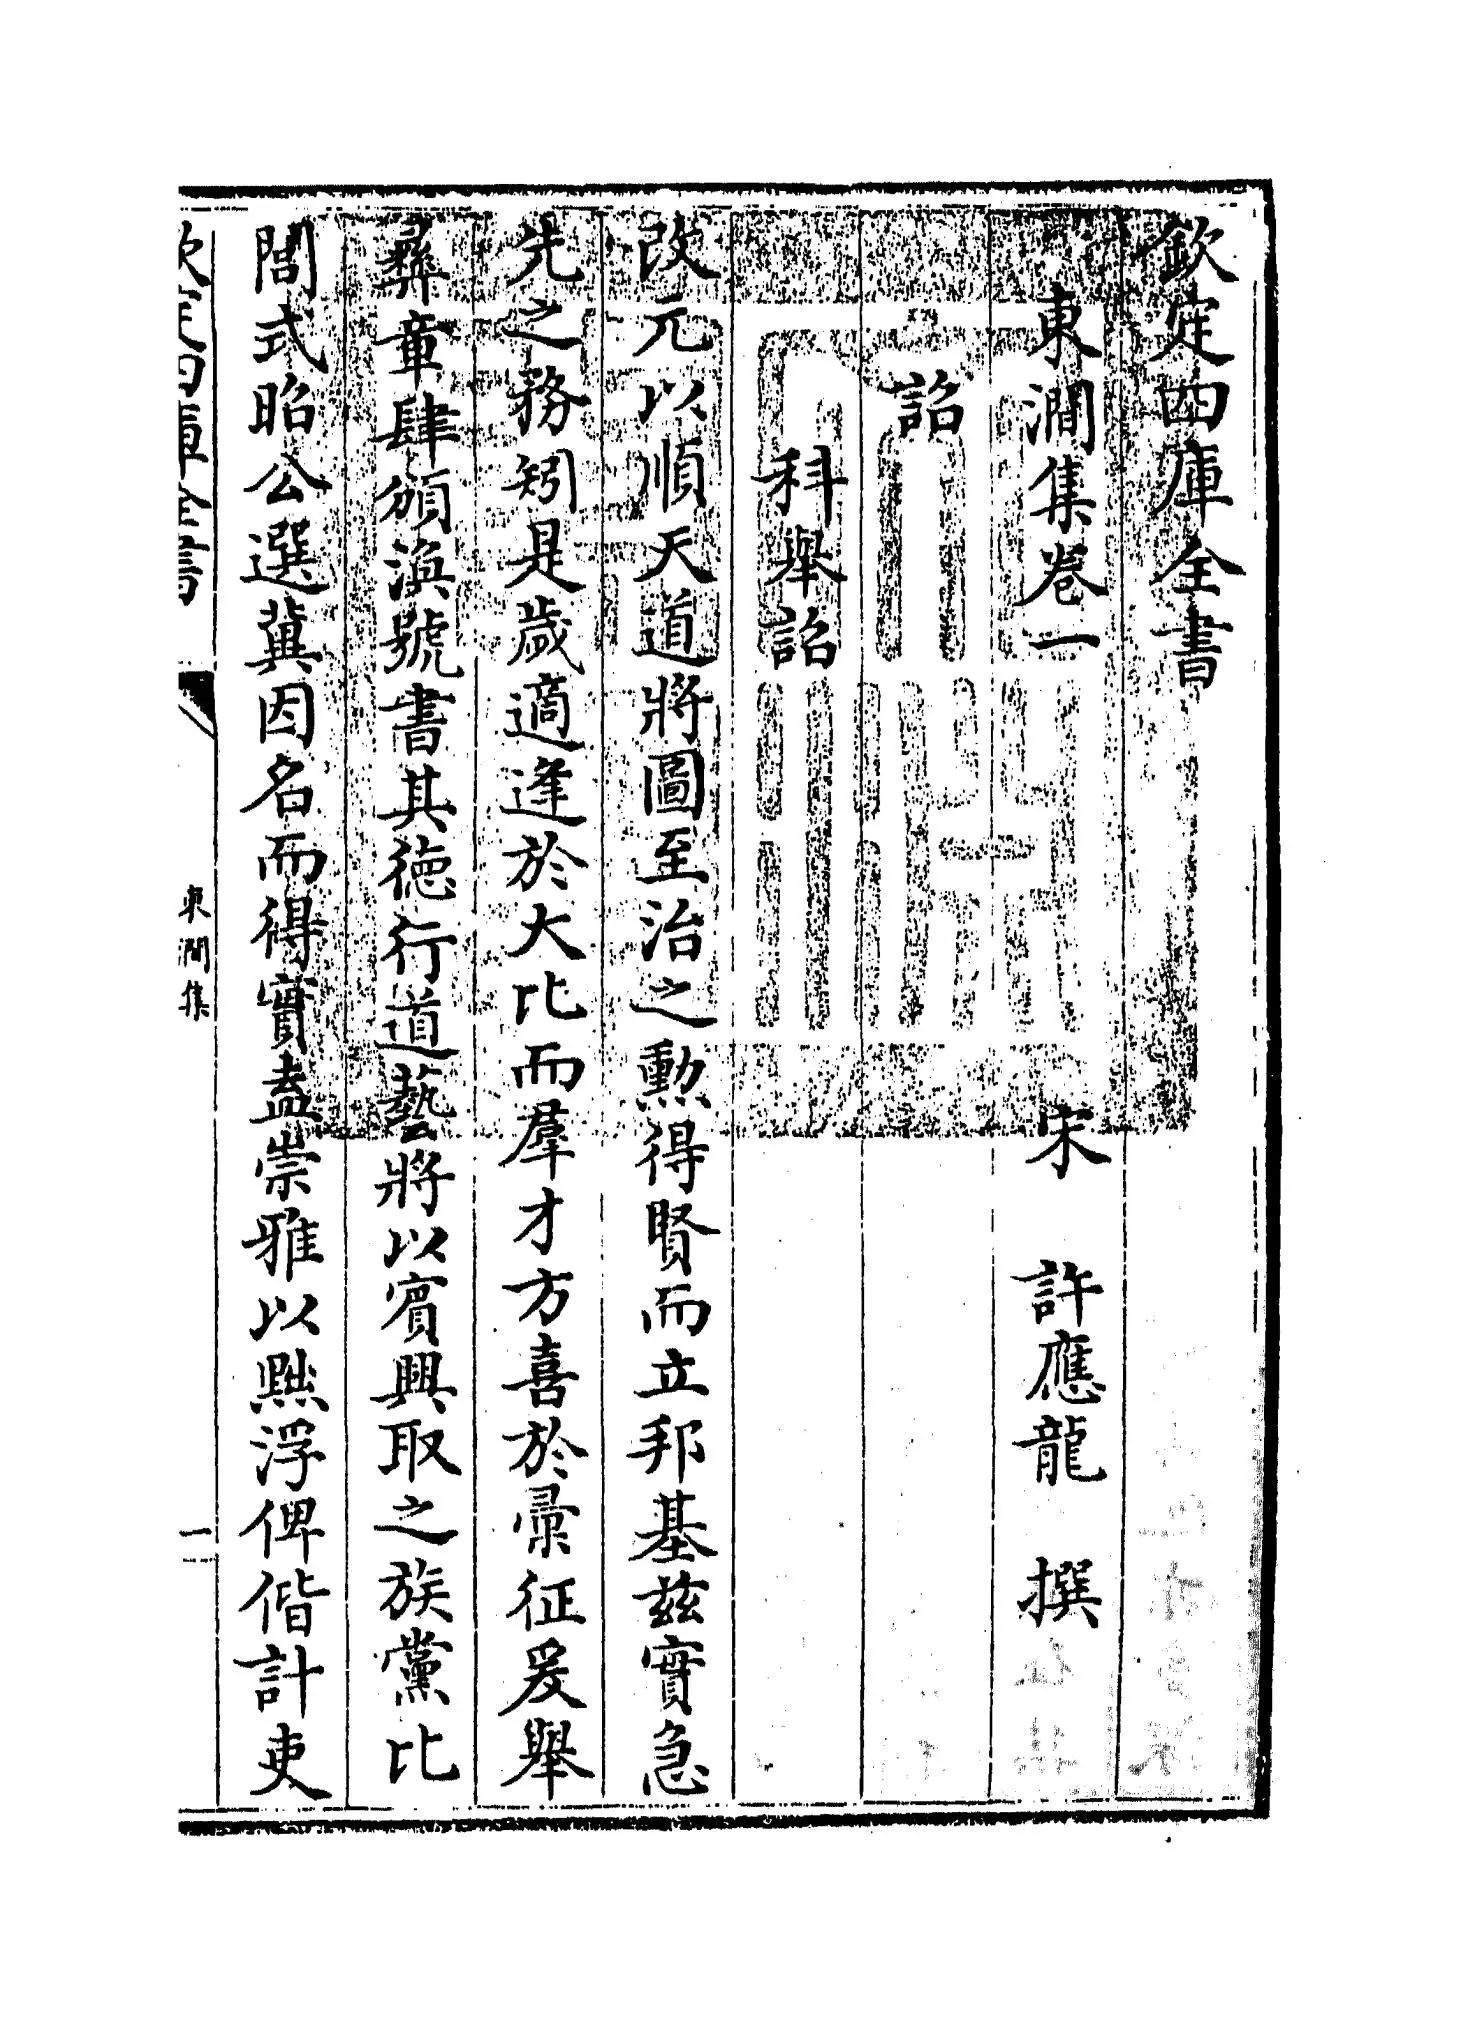 欽定四庫全書
東澗集卷一
宋 許應龍 撰
詔
科舉詔
改元以順天道將圖至治之勲得賢而立邦基兹實急
先之務矧是歲適逢於大比而羣才方喜於彚征爰舉
彞章肆頒渙號書其德行道藝將以賓興取之族黨比
閭式昭公選冀因名而得實盍崇雅以黜浮俾偕計吏
欽定四庫全書
東澗集
一